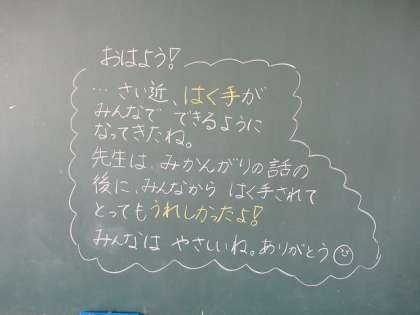 おはよう!
… さい近、はく手が
みんなで できるように
なってきたね。
先生は、みかんがりの話の
後に、みんなから はく手されて
とってもうれしかったよ!
みんなは やさしいね。ありがとう